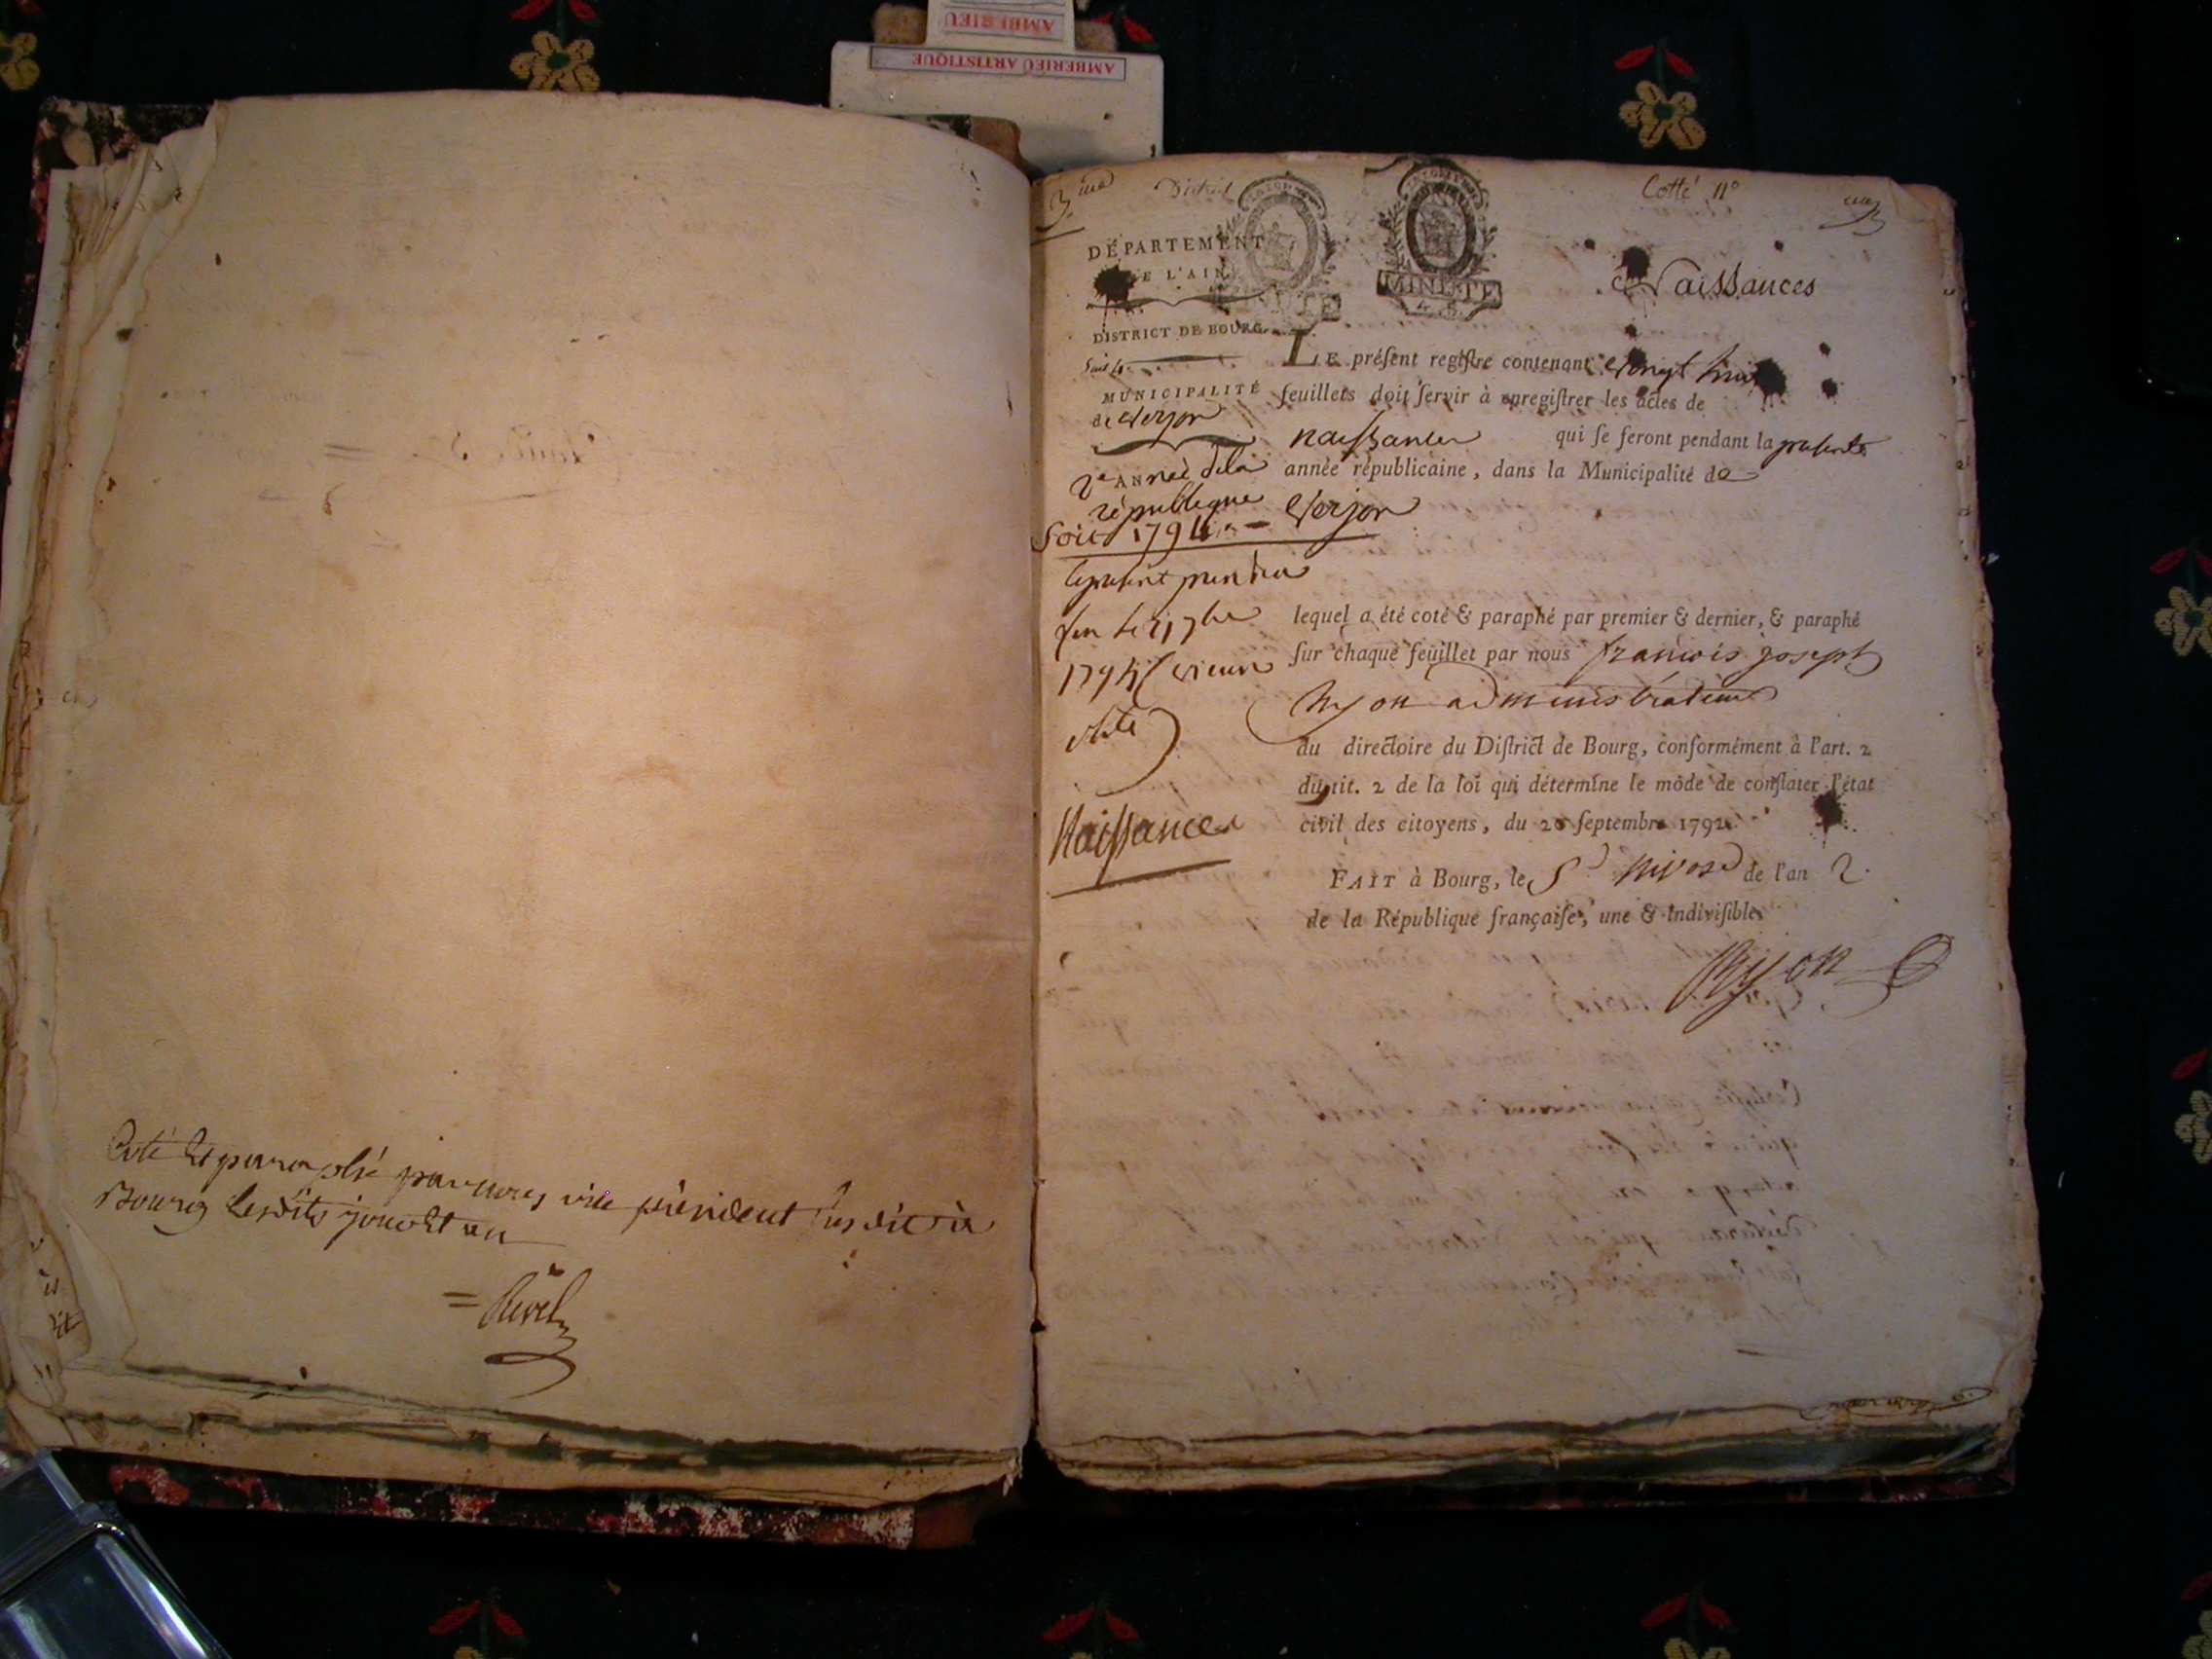 AMBERIEU
AMBERIEU ARTISTIQUE
Coté et paraphé par nous vice président susdit à
Bourg lesdits jour et an
= Revel
3.me District
Cotté 11°
DÉPARTEMENT
DE L'AIN.
MINUTE
MINUTE
4. S.
Naissances
DISTRICT DE BOURG.
MUNICIPALITÉ
de Verjon
2e ANnée dela
république
Soit 1794
le présent
1794 (vieux
stile)
Naissances
LE préſent regiſtre contenant vingt huit
feuillets doit ſervir à enregiſtrer les actes de
naissances qui ſe feront pendant la présente
année républicaine, dans la Municipalité de
Verjon
lequel a été coté & paraphé par premier & dernier, & paraphé
ſur chaque feuillet par nous francois joseph
administrateur
du directoire du Diſtrict de Bourg, conformément à l'art. 2
du tit. 2 de la loi qui détermine le mode de conſtater l'état
civil des citoyens, du 20 ſeptembre 1792.
FAIT à Bourg, le nivose de l'an 2.
de la République françaiſe, une & indiviſible.